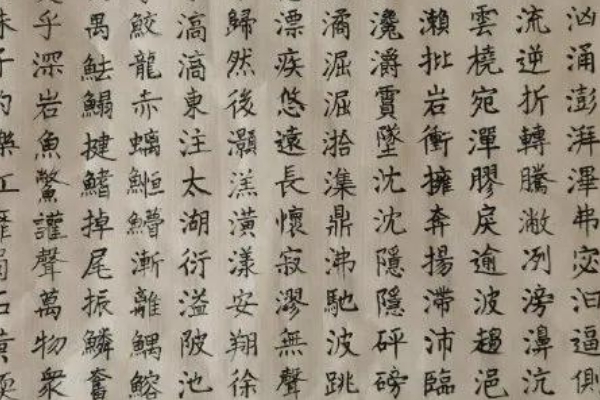 洶涌彭湃滭弗宓汩逼側
流逆折轉騰潎冽滂濞沆
雲橈宛潬膠戾逾波趨浥
瀨批岩衝擁奔揚滯沛臨
瀺灂霣墜沈沈隱隱砰磅
潏淈淈湁潗鼎沸馳波跳
漂疾悠遠長懷寂漻無聲
歸然後灝溔潢漾安翔徐
滈滈東注太湖衍溢陂池
鮫龍赤螭漸離鰅鰫
禺魼鰨揵鰭掉尾振鱗奮
乎深岩魚鱉讙聲萬物衆